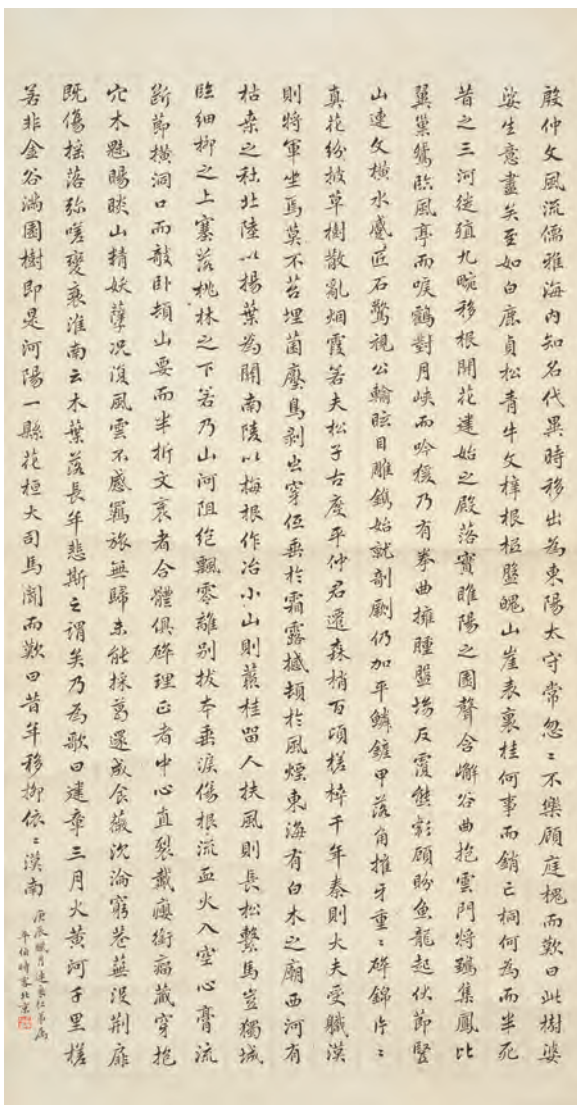 殷仲文風流儒雅海內知名代異時移出為東陽太守常忽〻不樂顧庭槐而歎曰此樹婆
娑生意盡矣至如白鹿貞松青牛文梓根柢盤魄山崖表裏桂何事而銷亡桐何為而半死
昔之三河徙殖九畹移根開花建始之殿落實睢陽之園聲含嶰谷曲抱雲門將鵷集鳳比
翼巢鴛臨風亭而唳鶴對月峽而吟猨乃有拳曲擁腫盤坳反覆熊彪顧盼魚龍起伏節豎
山連文橫水蹙匠石驚視公輸眩目雕鐫始就剞劂仍加平鱗鏟甲落角摧牙重〻碎錦片〻
真花紛披草樹散亂烟霞若夫松子古度平仲君遷森梢百頃槎枿千年秦則大夫受職漢
則將軍坐焉莫不苔埋菌壓鳥剝虫穿低垂於霜露撼頓於風煙東海有白木之廟西河有
枯桑之社北陸以楊葉為關南陵以梅根作冶小山則叢桂留人扶風則長松繫馬豈獨城
臨細柳之上塞落桃林之下若乃山河阻絕飄零離別拔本垂淚傷根流血火入空心膏流
斷節橫洞口而敧卧頓山要而半折文衺者合體俱碎理正者中心直裂戴癭銜瘤藏穿抱
穴木魅睗睒山精妖孽況復風雲不感羈旅無歸未能採葛還成食薇沉淪窮巷蕪沒荊扉
既傷搖落彌嗟變衰淮南云木葉落長年悲斯之謂矣乃為歌曰建章三月火黃河千里槎
若非金谷滿園樹即是河陽一縣花桓大司馬聞而歎曰昔年移柳依〻漢南
庚辰臘月仁弟屬
平伯時客北京